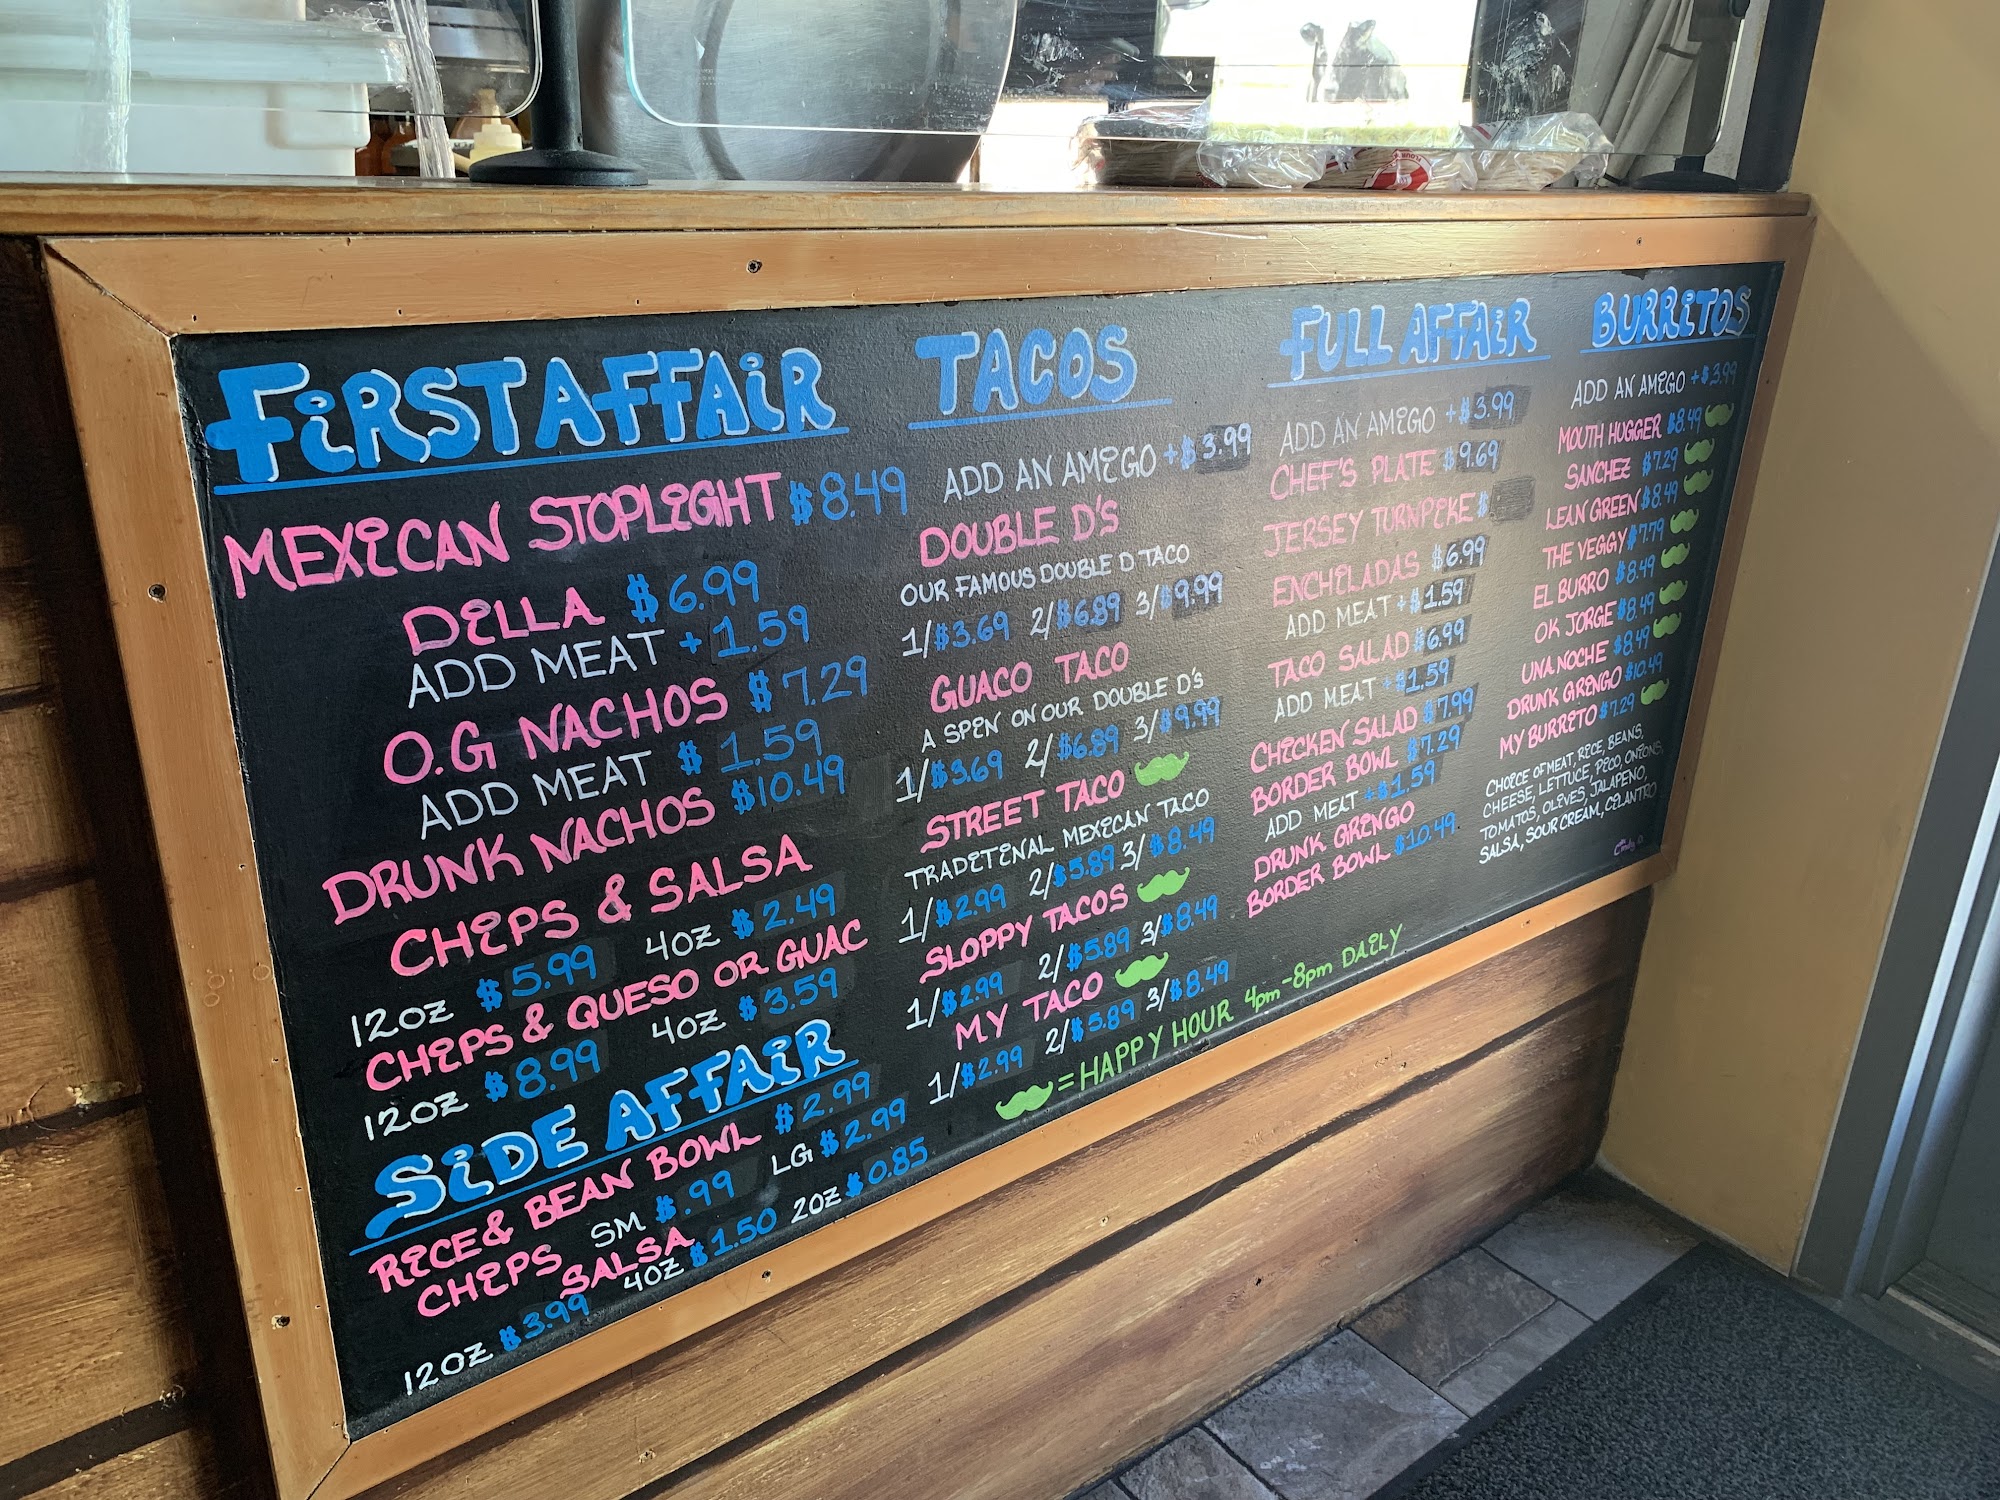 FIRST AFFAIR
MEXICAN STOPLIGHT $8.49
DILLA $6.99
ADD MEAT +1.59
O.G NACHOS $7.29
ADD MEAT $1.59
DRUNK NACHOS $10.49
CHIPS & SALSA
12OZ $5.99 4OZ $2.49
CHIPS & QUESO OR GUAC
12OZ $8.99 4OZ $3.59
SIDE AFFAIR
RICE & BEAN BOWL $2.99
CHIPS SM $.99 LG $2.99
SALSA
12OZ $3.99 4OZ $1.50 2OZ $0.85
TACOS
ADD AN AMIGO +$3.99
DOUBLE D'S
OUR FAMOUS DOUBLE D TACO
1/$3.69 2/$6.89 3/$9.99
GUACO TACO
A SPIN ON OUR DOUBLE D'S
1/$3.69 2/$6.89 3/$9.99
STREET TACO
TRADITINAL MEXICAN TACO
1/$2.99 2/$5.89 3/$8.49
SLOPPY TACOS
1/$2.99 2/$5.89 3/$8.49
MY TACO
1/$2.99 2/$5.89 3/$8.49
=HAPPY HOUR 4pm-8pm DAILY
FULL AFFAIR
ADD AN AMIGO +$3.99
CHEF'S PLATE $9.69
JERSEY TURNPIKE $
ENCHILADAS $6.99
ADD MEAT +$1.59
TACO SALAD $6.99
ADD MEAT +$1.59
CHICKEN SALAD $7.99
BORDER BOWL $7.29
ADD MEAT +$1.59
DRUNK GRINGO
BORDER BOWL $10.49
BURRITOS
ADD AN AMIGO +$3.99
MOUTH HUGGER $8.49
SANCHEZ $7.29
LEAN GREEN $8.49
THE VEGGY $7.79
EL BURRO $8.49
OK JORGE $8.49
UNA NOCHE $8.49
DRUNK GRINGO $10.49
MY BURRITO $7.29
CHOICE OF MEAT, RICE, BEANS,
CHEESE, LETTUCE, PICO, ONIONS,
TOMATOS, OLIVES, JALAPENO,
SALSA, SOUR CREAM, CILANTRO